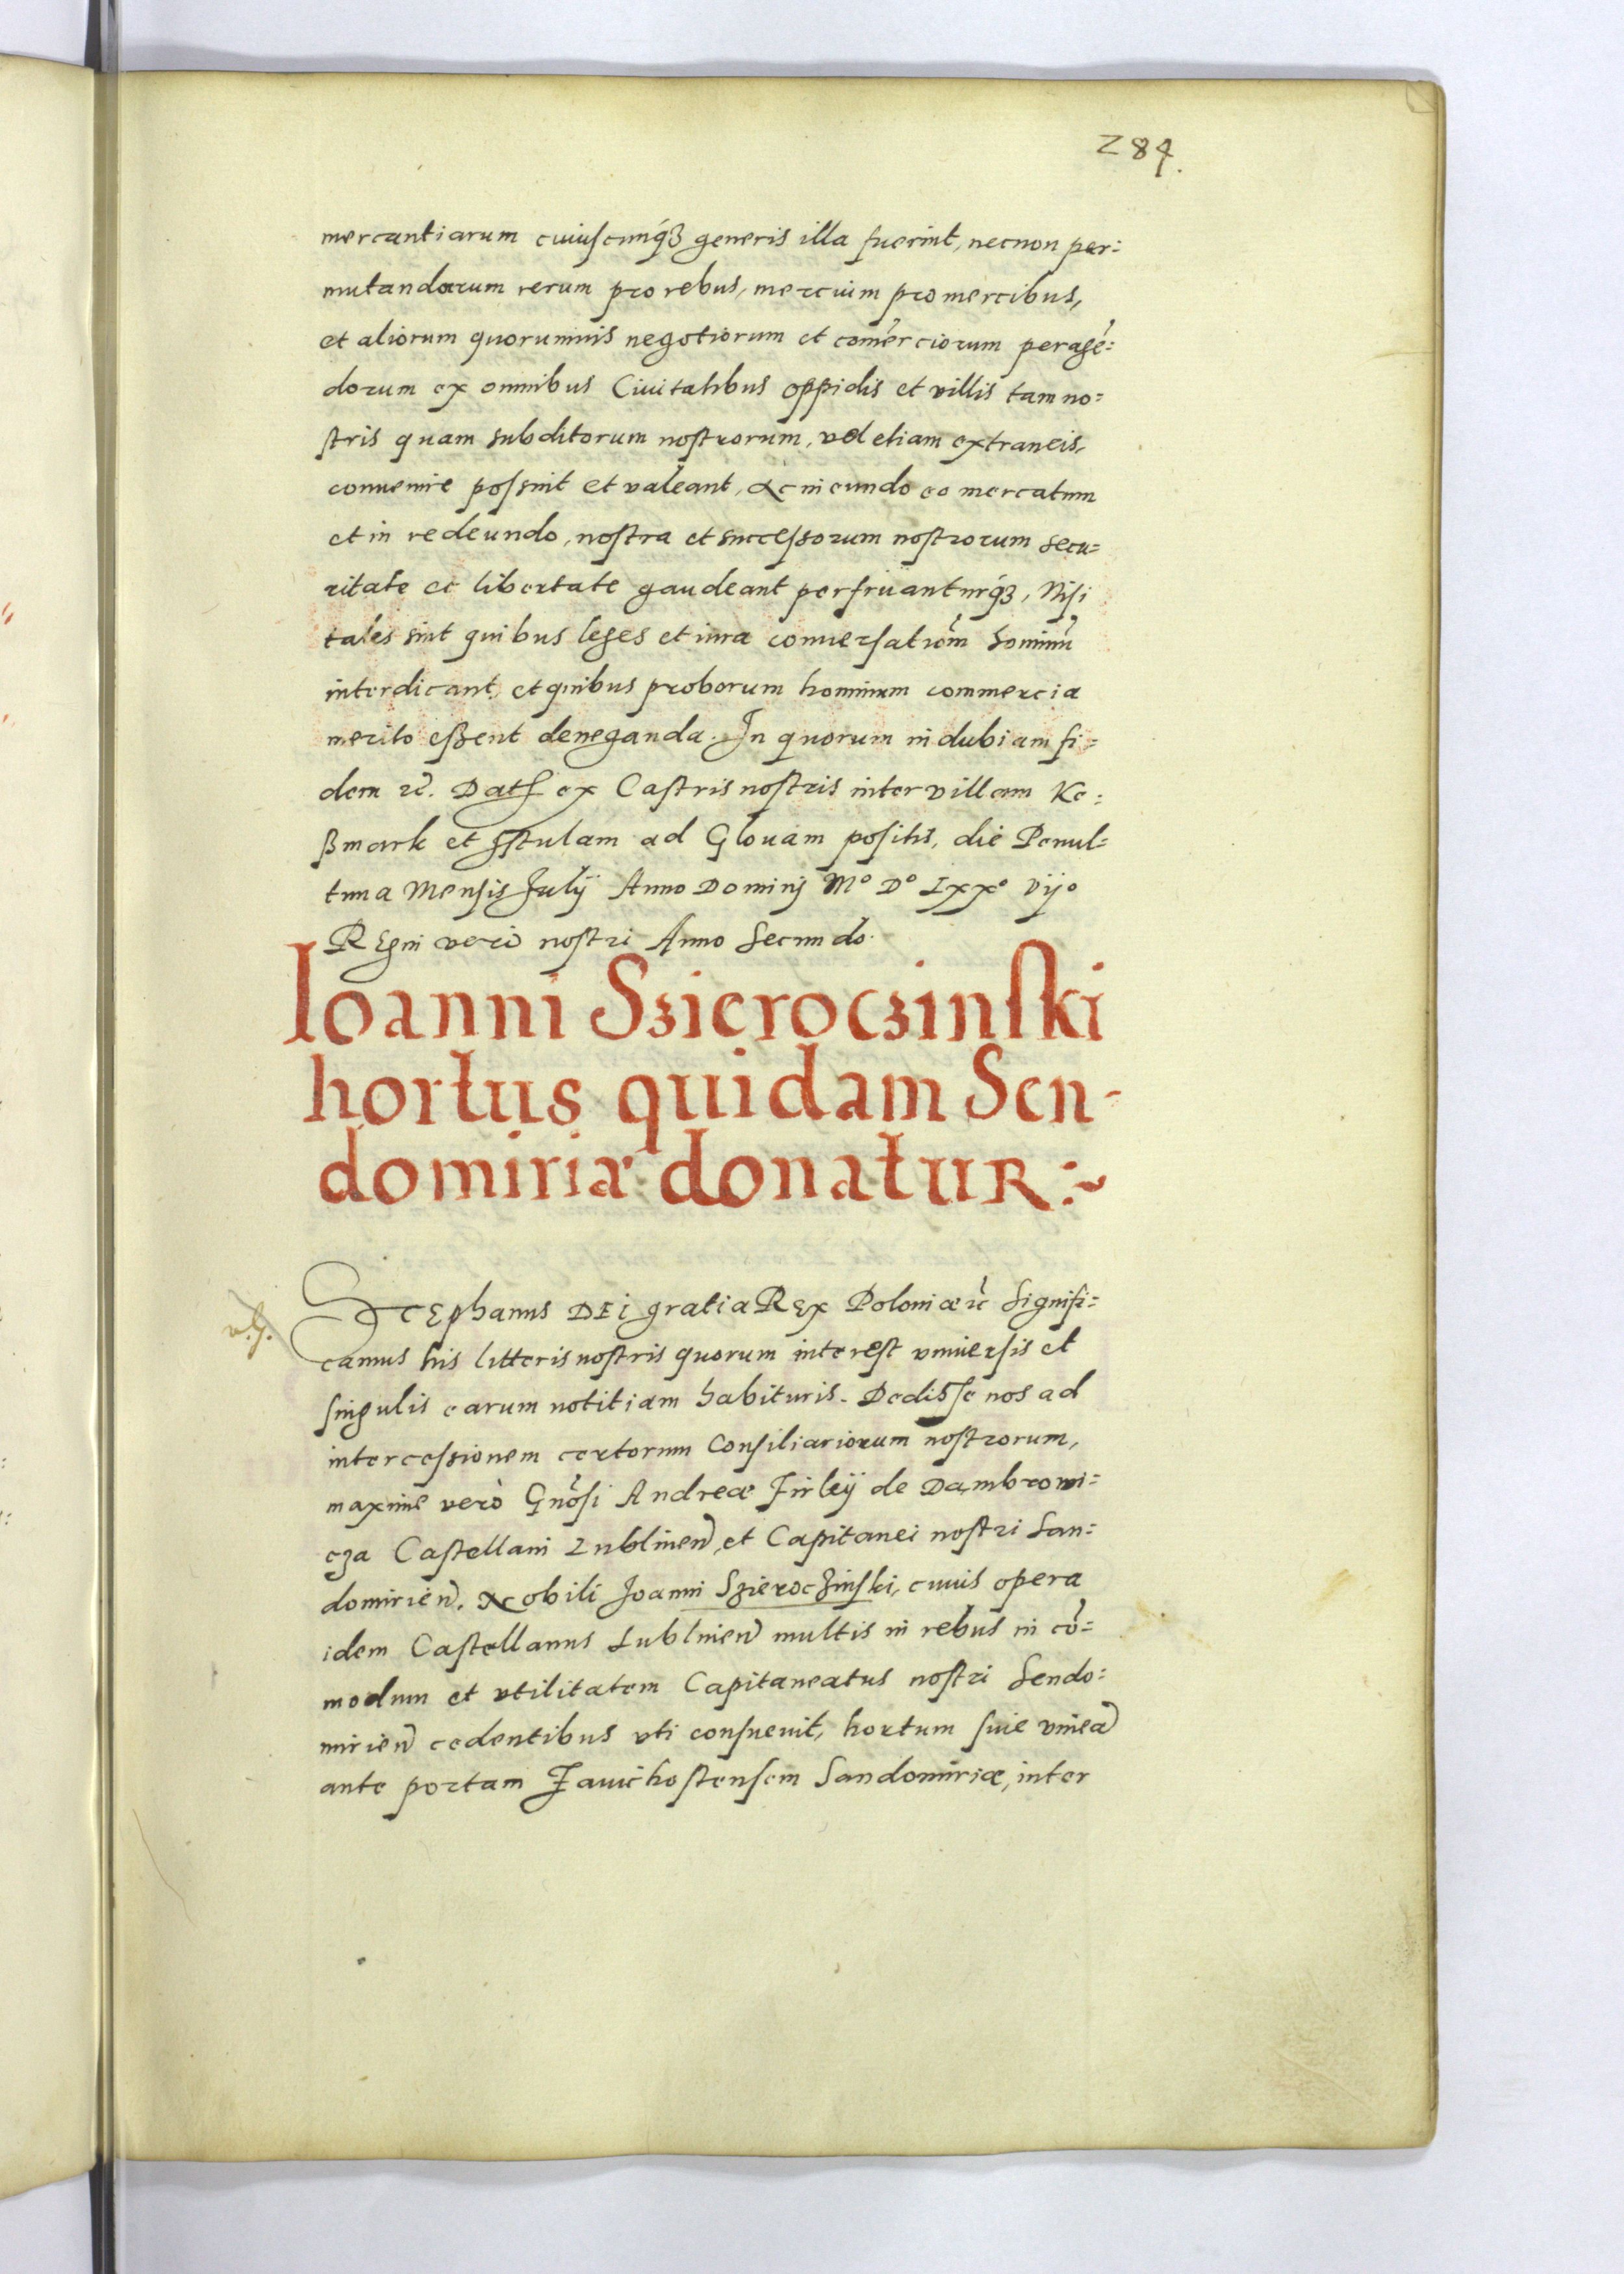 284.
mercantiarum cuiuscunq́ꝫ generis illa fuerint, necnon per:
mutandarum rerum pro rebus, mercium pro mercibus,
et aliorum quorumuis negotiorum et com̃erciorum peragẽ:
dorum ex omnibus Ciuitatibus oppidis et villis tam no:
stris quam subditorum nostrorum, vel etiam extraneis,
conuenire possint et valeant, Ac in eundo eo mercatum
et in redeundo, nostra et successorum nostrorum secu:
ritate ec libertate gaudeant perfruanturq́ꝫ, Nisi
tales sint quibus leges et iura conuersatiom̃ hominũ
interdicant, et quibus proborum hominum commercia
merito eßent deneganda. In quorum indubiam fi:
dem ꝛc̃. Datˢ ex Castris nostris inter villam Ke:
ßmark et Istulam ad Glouam positis, die Penul:
tima Mensis Julij Anno Dominj Mº Dº Lxxº vijº
Regni verò nostri Anno Secundo.
Ioanni Szieroczinski
hortus quidam Sen-
domiriæ donatur:~
v.g.
Stephanus DEi gratia Rex Poloniæ ꝛc̃ Signifi:
camus his litteris nostris quorum interest vniuersis et
singulis earum notitiam habituris. Dedisse nos ad
intercessionem certorum Consiliariorum nostrorum,
maxime verò Gnõsi Andreæ Firleij de Dambrowi:
cza Castellani Lublinen̄, et Capitanei nostri San:
domirien̄. Nobili Joanni Szieroczinski, cuius opera
idem Castellanus Lublinen̄ multis in rebus in cõ:
modum et vtilitatem Capitaneatus nostri Sendo:
mirien̄ cedentibus vti consueuit, hortum siue vineā
ante portam Zauichostensem Sandomiriæ, inter